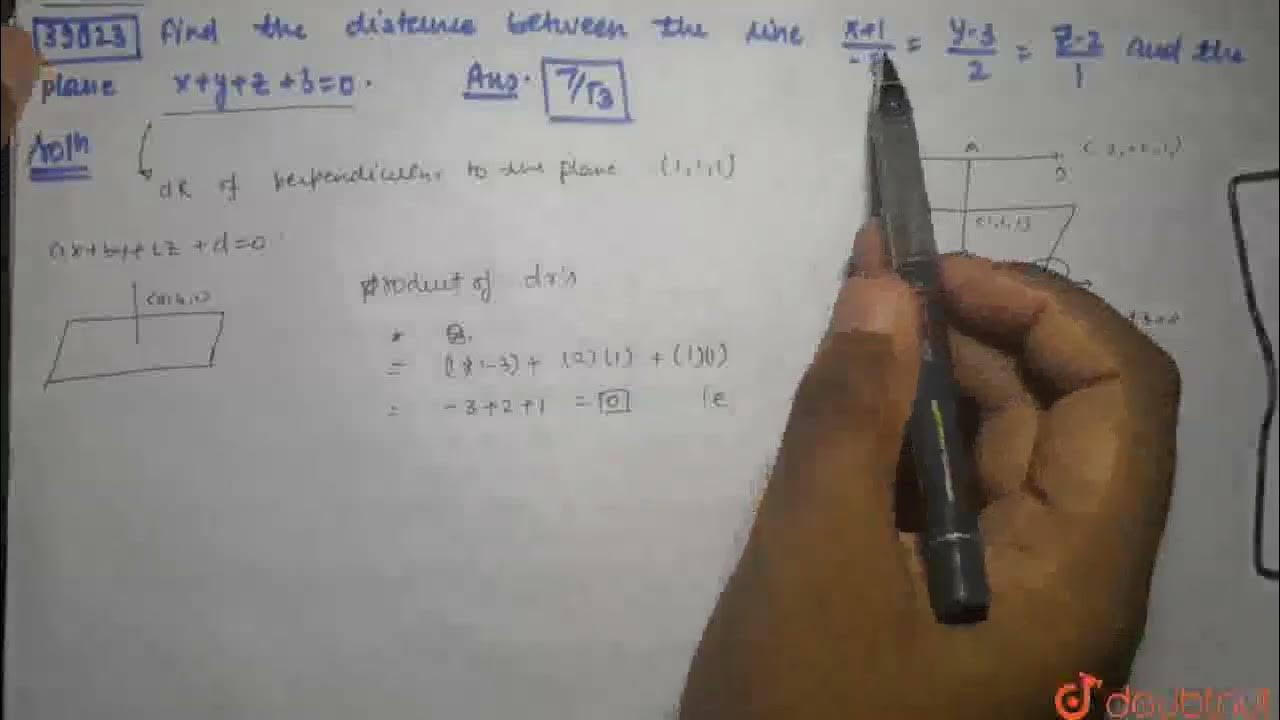 39023 Find the distance between the line x+1/-3 = y-3/2 = z-2/1 and the
plane x+y+z+3=0. Ans. 7/√3
Soln
dR of perpendicular to the plane (1,1,1)
ax+by+cz+d=0
(a,b,c)
product of dr's
= (1x-3) + (2)(1) + (1)(1)
= -3+2+1 = 0 i.e
A
(-3,+2,1)
(1,1,1)
doubtnut